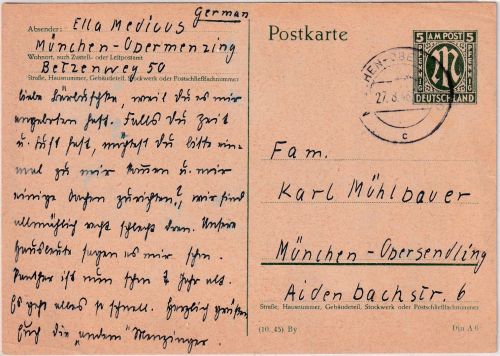 German
Absender: Ella Medicus
München-Obermenzing
Wohnort, auch Zustell- oder Leitpostamt
Betzenweg 50
Straße, Hausnummer, Gebäudeteil, Stockwerk oder Postschließfachnummer
liebe weil du es mir
angeboten hast. Falls du Zeit
u. Lust hast, möchtest du bitte ein-
mal zu mir kommen u. mir
einige Sachen zurichten?, wir sind
allmählich recht schlecht dran. Unsere
Hausleute sagen es mir schon.
ist nun schon 7 Jahr alt.
Es geht alles so schnell. Herzlich grüßen
Euch die „andern" Menzinger.
Postkarte
5 AM POST 5
PFENNIG PFENNIG
DEUTSCHLAND
27.8.
c
Fam.
Karl Mühlbauer
München-Obersendling
Aidenbachstr. 6
Straße, Hausnummer, Gebäudeteil, Stockwerk oder Postschließfachnummer
(10. 45) By
Din A 6